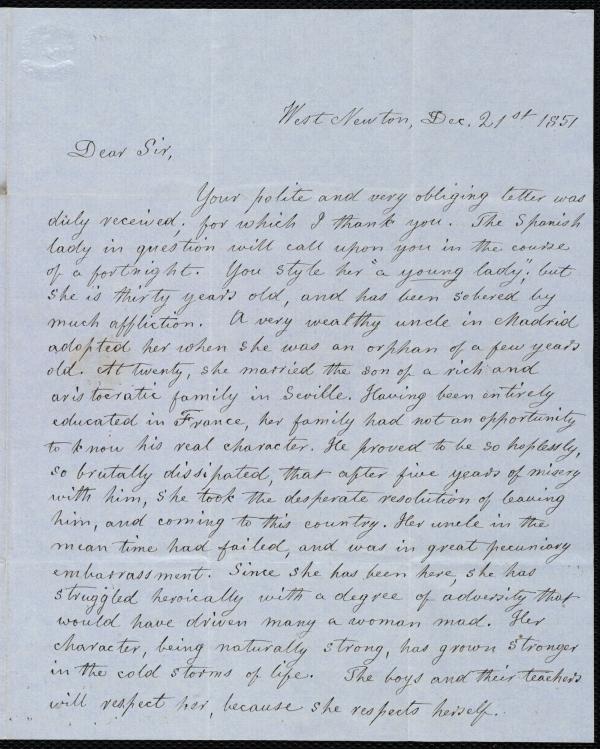 West Newton, Dec. 21st 1851
Dear Sir,
Your polite and very obliging letter was
duly received; for which I thank you. The Spanish
lady in question will call upon you in the course
of a fortnight. You style her "a young lady"; but
she is thirty years old, and has been sobered by
much affliction. A very wealthy uncle in Madrid
adopted her when she was an orphan of a few years
old. At twenty, she married the son of a rich and
aristocratic family in Seville. Having been entirely
educated in France, her family had not an opportunity
to know his real character. He proved to be so hoplessly,
so brutally dissipated, that after five years of misery
with him, she took the desperate resolution of leaving
him, and coming to this country. Her uncle in the
mean time had failed, and was in great pecuniary
embarrassment. Since she has been here, she has
struggled heroically with a degree of adversity that
would have driven many a woman mad. Her
character, being naturally strong, has grown stronger
in the cold storms of life. The boys and their teachers
will respect her, because she respects herself.